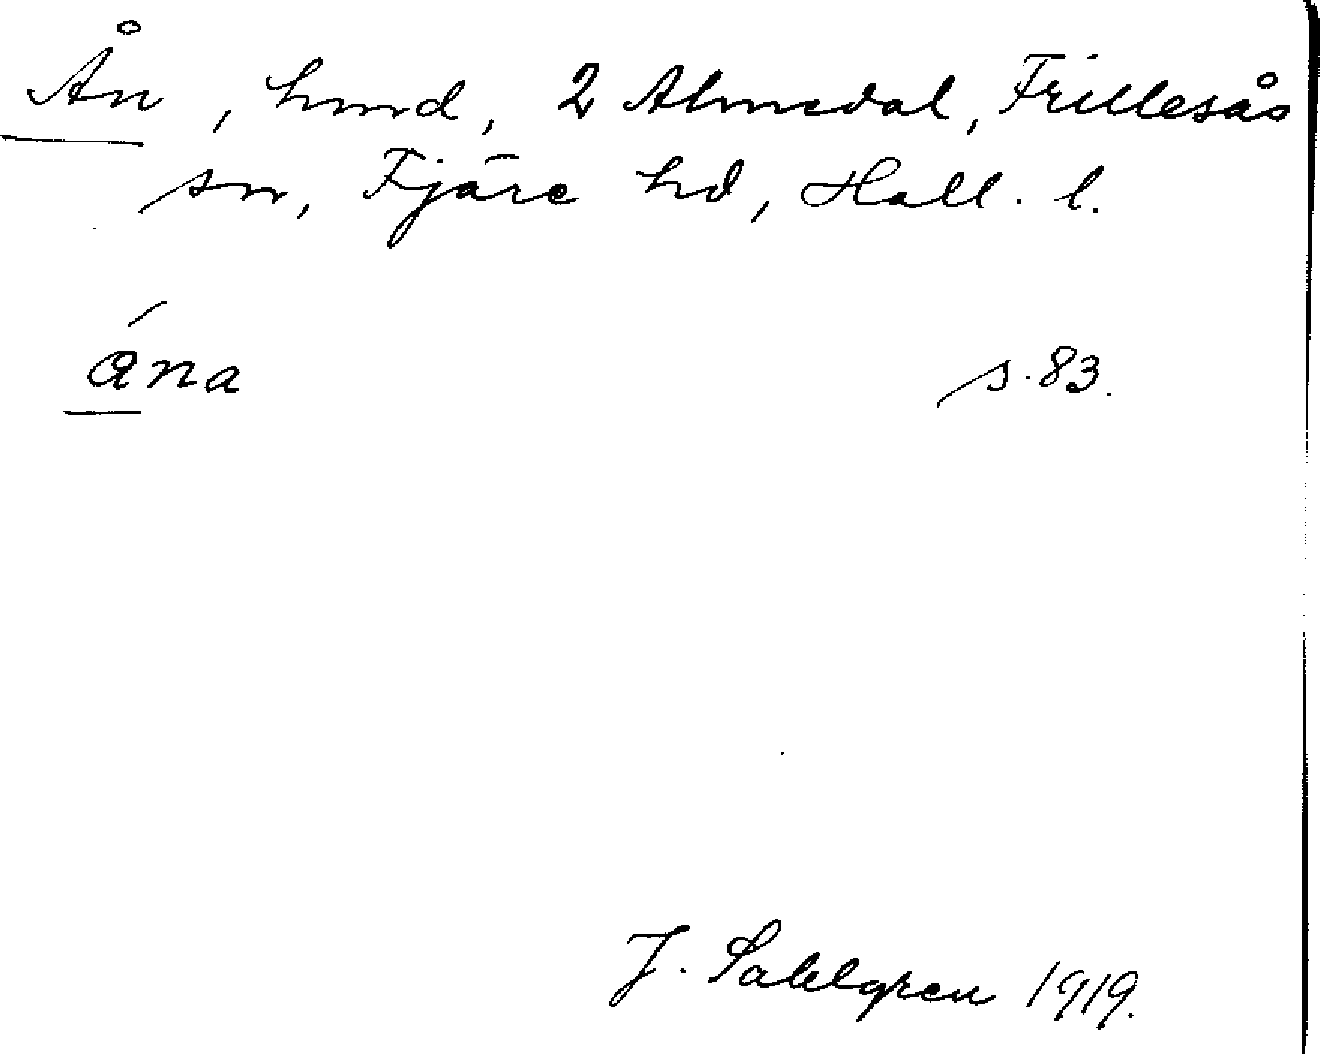 Ån, hmd, 2 Almedal, Frillesås
sn, Fjäre hd, Hall. l.
ǻna s. 83.
J. Sahlgren 1919.